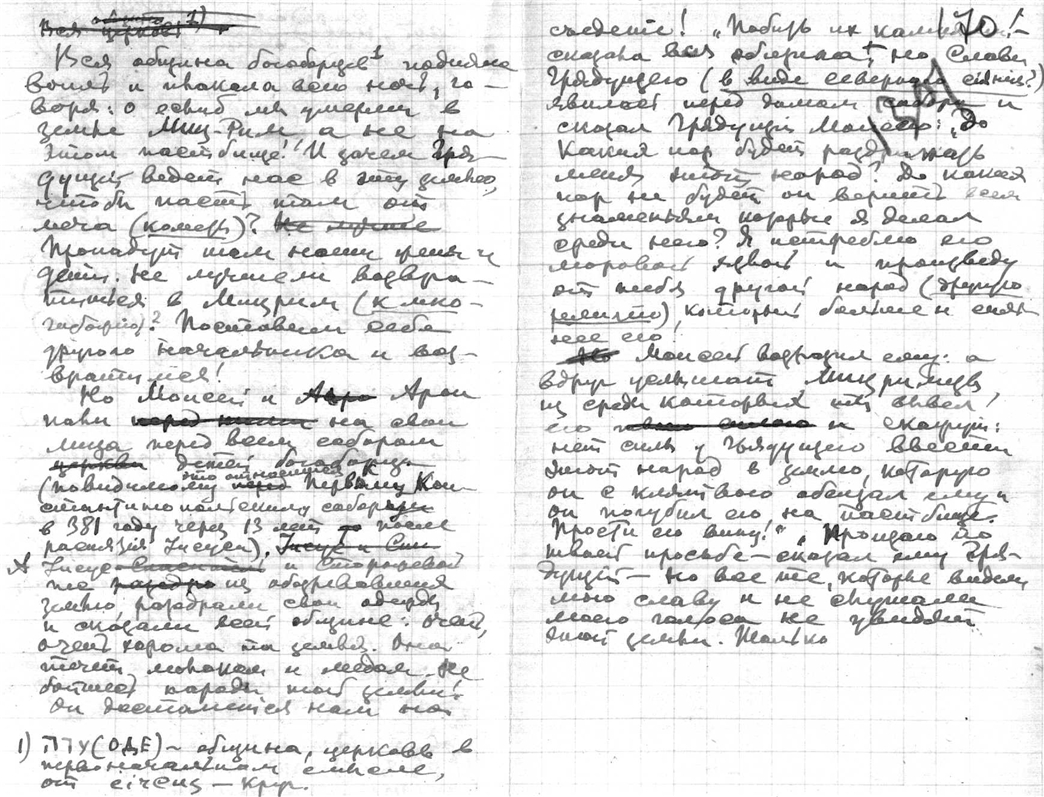 община 1)
Вся церковь
Вся община богоборцев¹ подняла
вопль и плакала всю ночь, го-
воря: о если б мы умерли в
земле Миц-Рим, а не на
этом пастбище! И зачем Гря-
дущий ведет нас в эту землю,
чтобы пасть там от
меча (кометы)? Не лучше
Пропадут там наши жены и
дети. Не лучше ли возвра-
титься в Мицрим (к
)? Поставим себе
другого начальника и воз-
вратимся!
Но Моисей и Аро Арон
пали перед ними на свои
лица перед всем собором
церкви детей богоборца
это относится к
(повидимому перед Первому Кон-
стантинопольскому собору
в 381 году через 13 лет после
распятия Иисуса), Иисус и Сын
А Иисус Спаситель и Сторожевой
пес из обозревавших
землю, разодрали свои одежды
и сказали всей общине: очень,
очень хороша та земля. Она
течет молоком и медом. Не
бойтесь народа той земли!
Он достанется нам на
1) (ОДЕ) – община, церковь в
первоначальном смысле,
от – круг.
170
съедение! „Побить их камнями!–
сказала вся община, но Слава
Грядущего (в виде северного сияния?)
явилась перед домом собора и
сказал Грядущий Моисею: „До
каких пор будет раздражать
меня этот народ? До каких
пор не будет он верить всем
знаменьям которые я делал
среди него? Я истреблю его
моровой язвой и произведу
от тебя другой народ (другую
религию), который больше и силь-
нее его!
Но Моисей возразил ему: а
вдруг услышат Мицримцы
из среды которых ты вывел
его и скажут:
нет силы у Грядущего ввести
этот народ в землю, которую
он с клятвою обещал ему и
он погубил его на пастбище.
Прости его вину!" „Прощаю по
твоей просьбе – сказал ему Гря-
дущий – но все те, которые видели
мою славу и не слушали
моего голоса не увидят
этой земли. Только